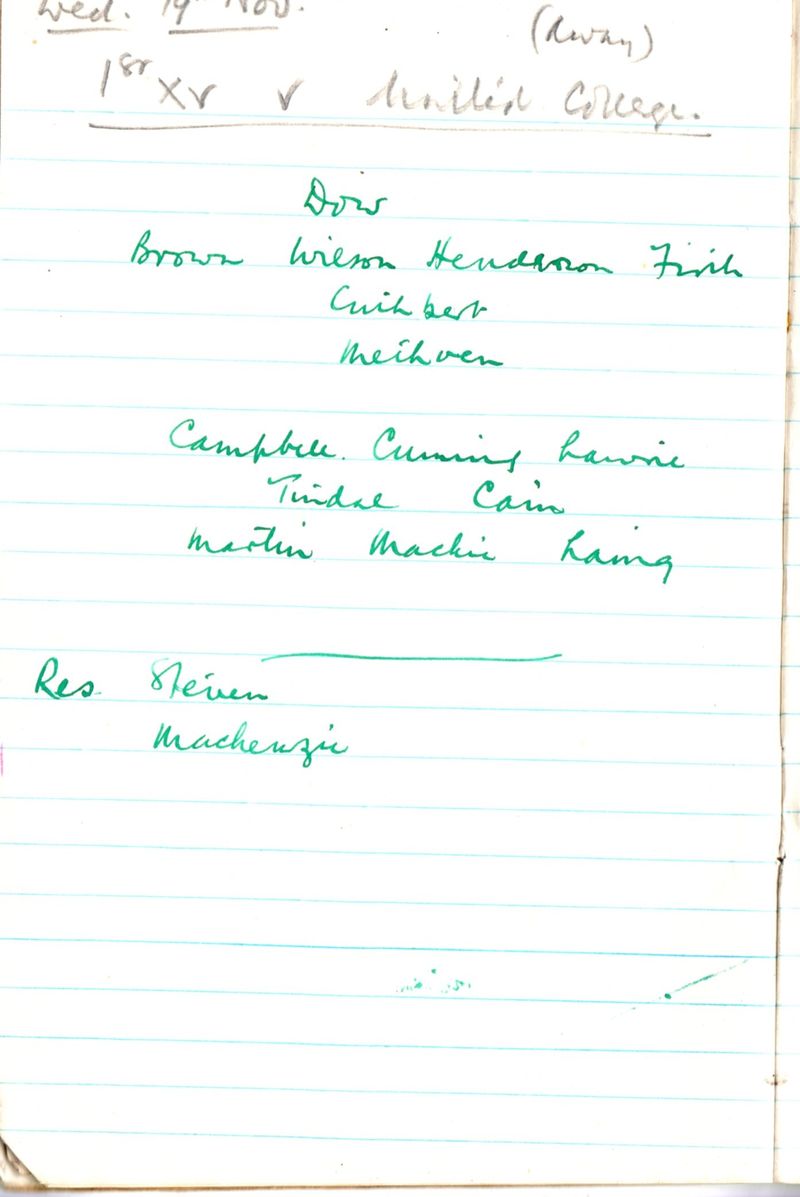 Wed. 19th Nov.
(Away)
1st XV v United College.
Dow
Brown Wilson Henderson Firth
Cuthbert
Methven
Campbell. Cuming Lawrie
Tindal Cain
Martin Mackie Laing
Res. Steven
Mackenzie